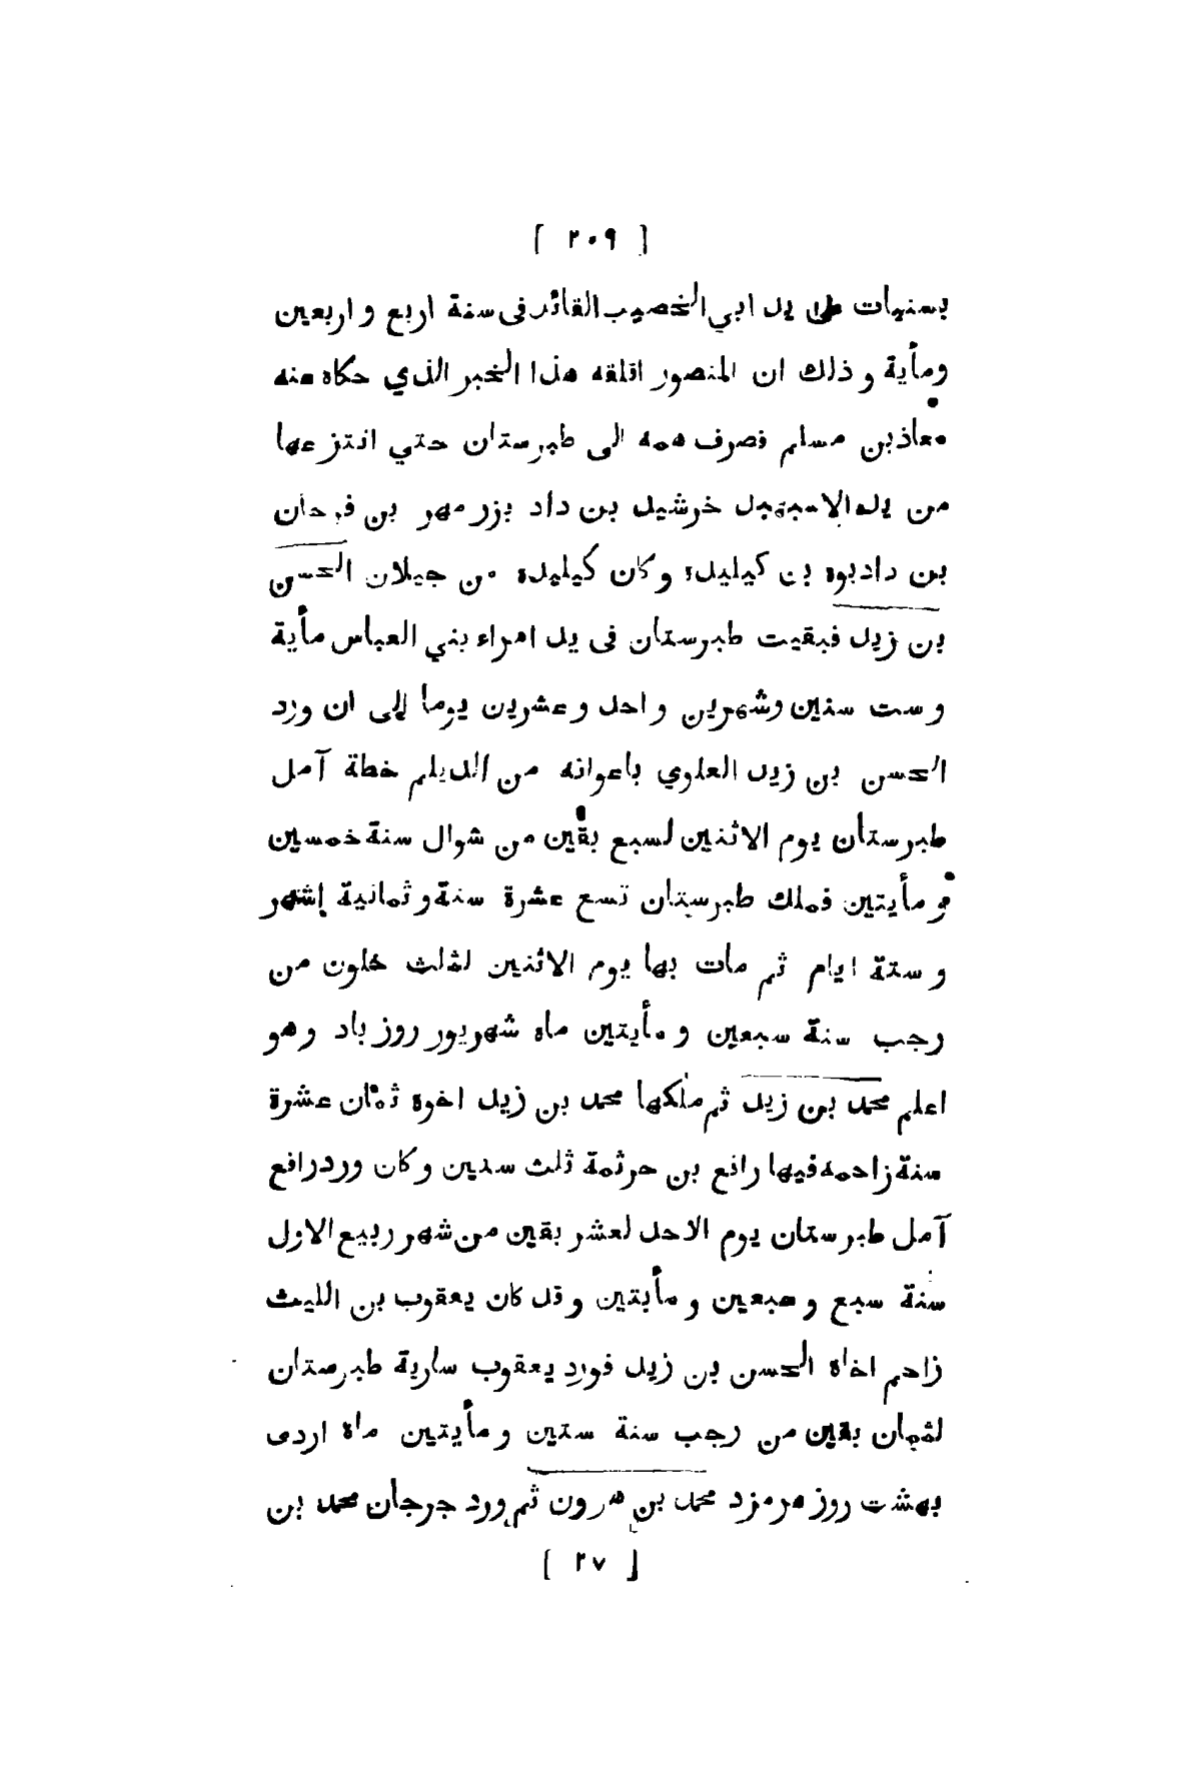 [ ٢٠٩ ]
بسنيات على يد ابي الخصيب القائد فى سنة اربع و اربعين
ومأية و ذلك ان المنصور اقلقه هذا الخبر الذي حكاه منه
معاذ بن مسلم فصرف همه الى طبرستان حتي انتزعها
من يد الاصبهبد خرشيد بن داد بزرمهر بن فرخان
بن دادبوه بن كيليده وكان كيليده من جيلان الحسن
بن زيد فبقيت طبرستان فى يد امراء بني العباس مأية
و ست سنين وشهرين و احد و عشرين يوما إلى ان ورد
الحسن بن زيد العلوي باعوانه من الديلم خطة آمل
طبرستان يوم الاثنين لسبع بقين من شوال سنة خمسين
و مأيتين فملك طبرستان تسع عشرة سنة و ثمانية إشهر
و ستة ايام ثم مات بها يوم الاثنين لثلث خلون من
رجب سنة سبعين و مأيتين ماه شهريور روز باد وهو
اعلم محمد بن زيد ثم ملكها محمد بن زيد اخوه ثمان عشرة
سنة زاحمه فيها رافع بن حرثمة ثلث سنين وكان ورد رافع
آمل طبرستان يوم الاحد لعشر بقين من شهر ربيع الاول
سنة سبع و سبعين و مأيتين و قد كان يعقوب بن الليث
زاحم اخاه الحسن بن زيد فورد يعقوب سارية طبرستان
لثمان بقين من رجب سنة ستين و مأيتين ماه اردى
بهشت روز هرمزد محمد بن هرون ثم ورد جرجان محمد بن
[ ٢٧ ]